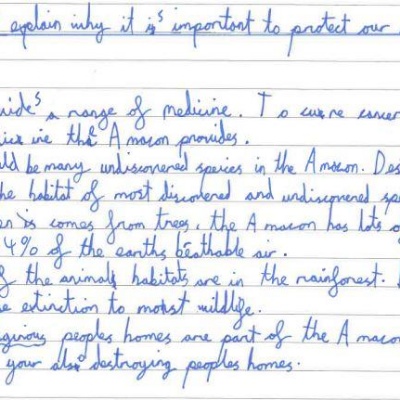 explain why it is important to protect our
ides a range of medicine. To cure cancer
in the Amacon provides.
ld be many undiscovered species in the Amacon. Des
he habitat of most discovered and undiscovered spe
en is comes from trees, the Amacon has lots o
4% of the earths bëathable air.
f the animals habitats are in the rainforest.
e extinction to mohst wildlife.
ginous peoples homes are part of the Amacon
your also destroying peoples homes.